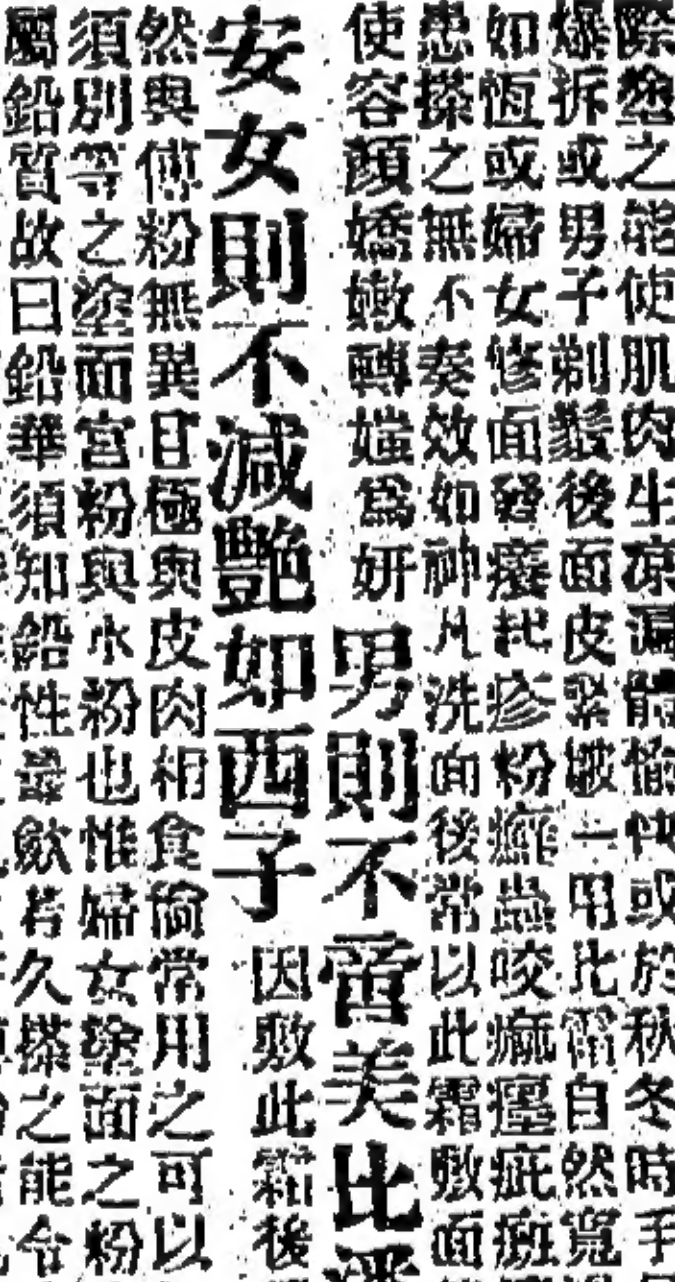 際塗之能使肌肉生凉漏體愉快或於秋冬時手
爆拆或男子剃鬚後面皮緊皺一用此霜自然寬
如恆或婦女修面發癢起疹粉癬蟲咬癩瘞疵痱
患搽之無不奏效如神凡洗面後常以此霜敷面
使容顏嬌嫩轉媸為妍 男則不啻美比潘
安女則不減艶如西子 因敷此霜後
然與傅粉無異且極與皮肉相食倫常用之可以
須別等之塗面宮粉與水粉也惟婦女塗面之粉
屬鉛質故曰鉛華須知鉛性最歛若久搽之能令